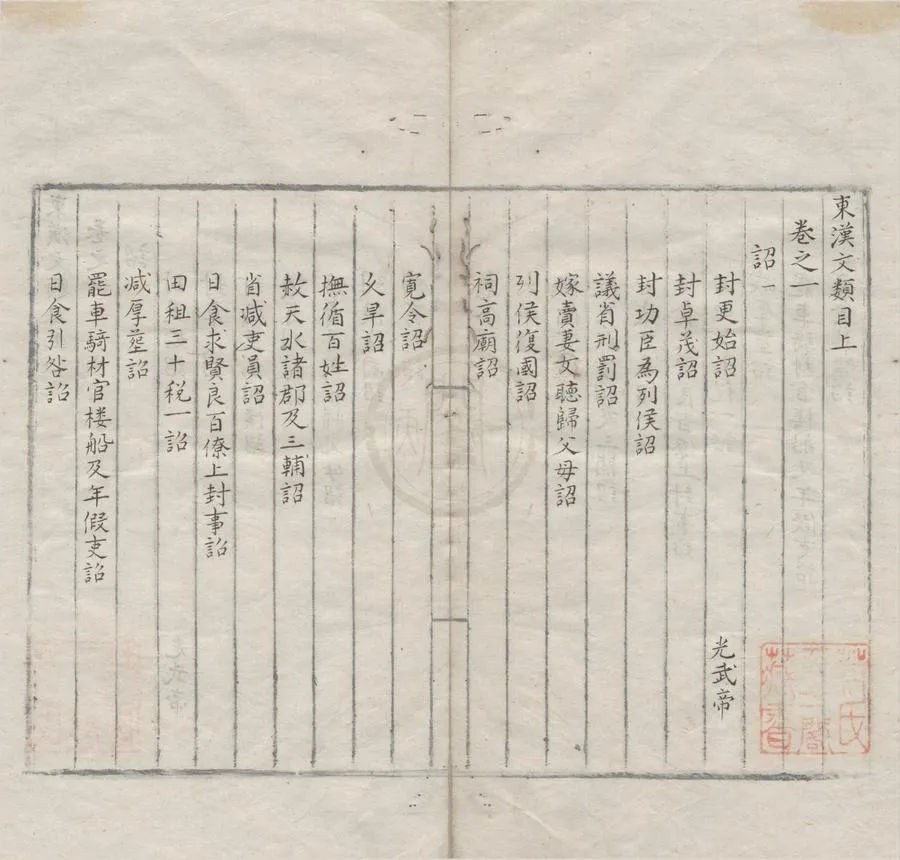 東漢文類目上
卷之一
詔一
封更始詔 光武帝
封卓茂詔
封功臣為列侯詔
議省刑罰詔
嫁賣妻女聽歸父母詔
列侯復國詔
祠高廟詔
寬令詔
久旱詔
撫循百姓詔
赦天水諸郡及三輔詔
省减吏員詔
日食求賢良百僚上封事詔
田租三十稅一詔
减厚塟詔
罷車騎材官楼船及年假吏詔
日食引咎詔